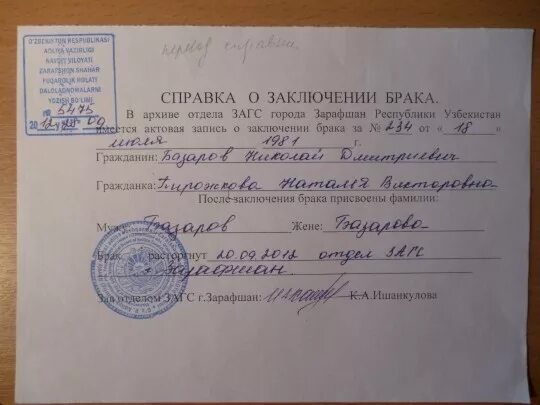 O'ZBEKISTON RESPUBLIKASI
ADLIYA VAZIRLIGI
NAVOIY VILOYATI
ZARAFSHON SHAHAR
FUQAROLIK HOLATI
DALOLATNOMALARNI
YOZISH BO'LIMI
№ 5475
2012 28 09
перевод справки
СПРАВКА О ЗАКЛЮЧЕНИИ БРАКА.
В архиве отдела ЗАГС города Зарафшан Республики Узбекистан
имеется актовая запись о заключении брака за № 234 от « 18 »
июля 1981 г.
Гражданин: Базаров Николай Дмитриевич
Гражданка: Пирожкова Наталья Викторовна
После заключения брака присвоены фамилии:
Мужу Базаров Жене: Базарова
Брак расторгнут 20.09.2012 отдел ЗАГС
г. Зарафшан.
Зав отделом ЗАГС г.Зарафшан: К.А.Ишанкулова